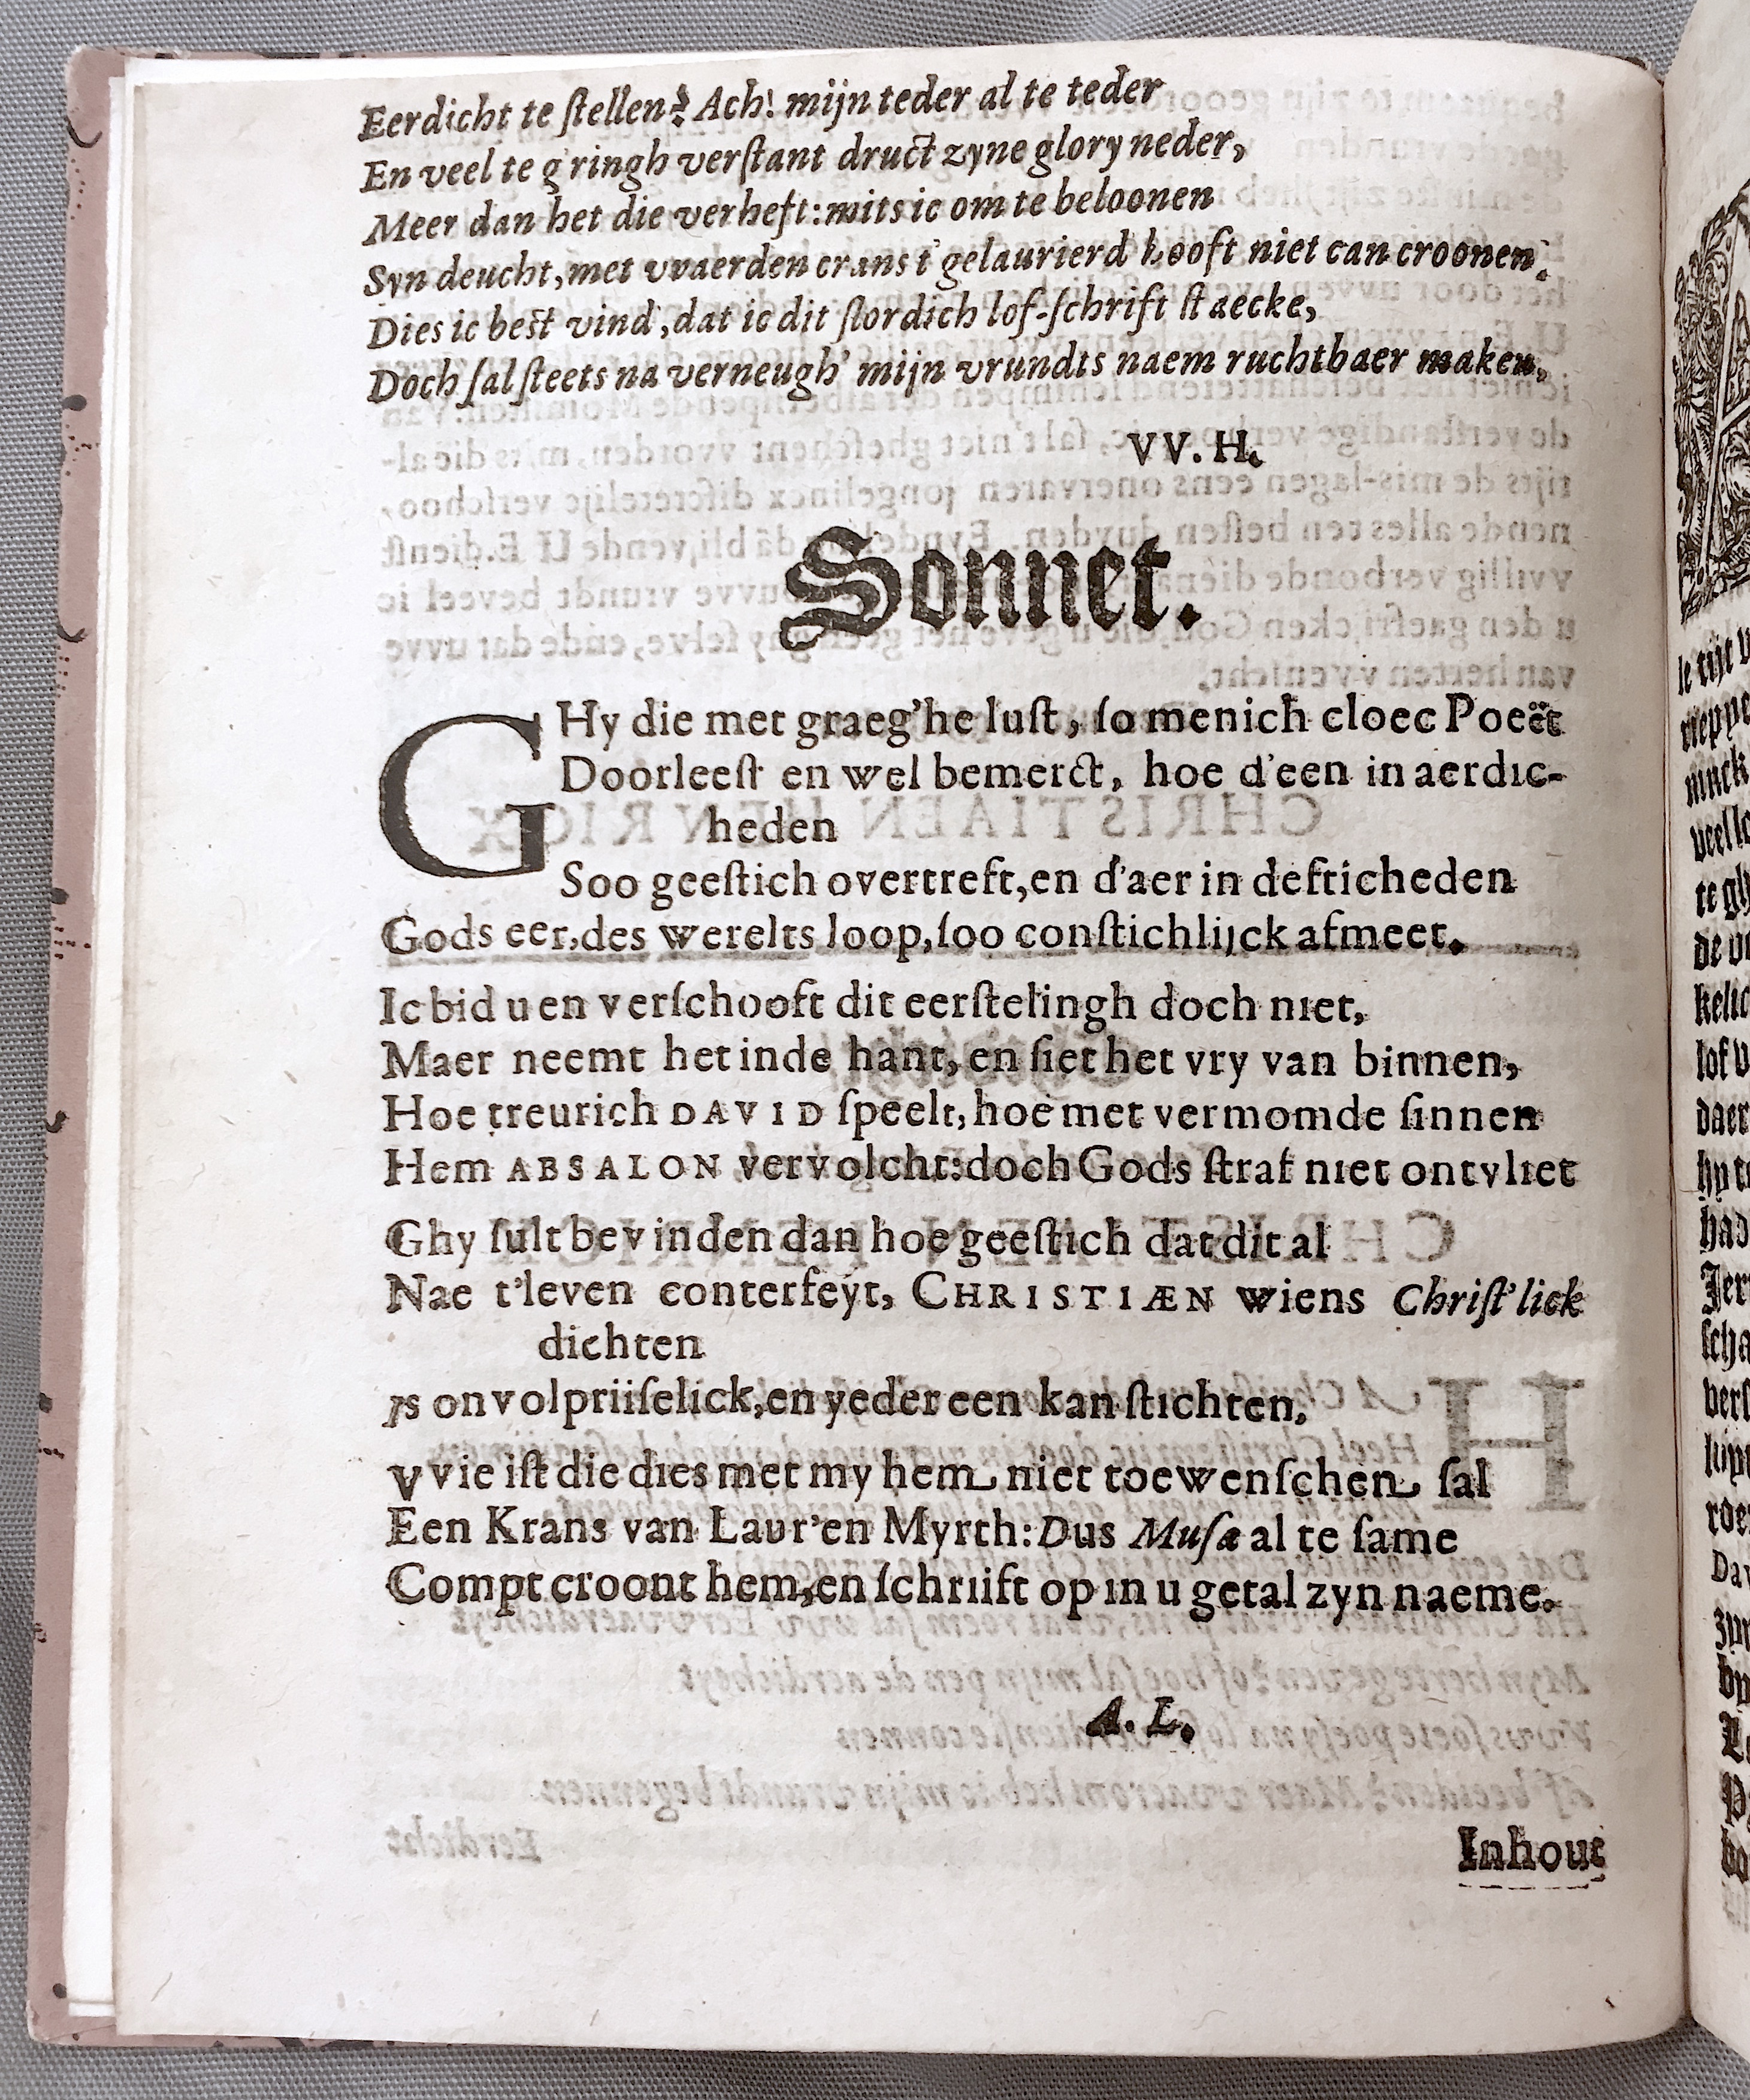 Eerdicht te ſtellen? Ach! mijn teder al te teder
En veel te g'ringh verſtant druct zyne glory neder,
Meer dan het die verheft: mits ic om te beloonen
Syn deucht, met vvaerden crans t' gelaurierd hooft niet can croonen.
Dies ic best vind, dat ic dit slordich lof-ſchrift ſtaecke,
Doch ſal ſteets na verneugh' mijn vrundts naem ruchtbaer maken.
VV. H.
Sonnet.
GHy die met graeg'he luſt, ſo menich cloec Poeët
Doorleeſt en wel bemerct, hoe d'een in aerdic-
heden
Soo geeſtich overtreft, en d'aer in defticheden
Gods eer, des werelts loop, ſoo conſtichlijck afmeet.
Ic bid u en verſchooft dit eerſtelingh doch niet,
Maer neemt het inde hant, en ſiet het vry van binnen,
Hoe treurich DAVID ſpeelt, hoe met vermomde ſinnen
Hem ABSALON vervolcht: doch Gods ſtraf niet ontvliet
Ghy ſult bevinden dan hoe geeſtich dat dit al
Nae t'leven conterfeyt, CHRISTIÆN wiens Chriſt'lick
dichten
Js onvolpriiſelick, en yeder een kan ſtichten.
VVie iſt die dies met my hem niet toewenſchen ſal
Een Krans van Laur'en Myrth: Dus Muſæ al te ſame
Compt croont hem, en ſchriift op in u getal zyn naeme.
A. L.
Inhout